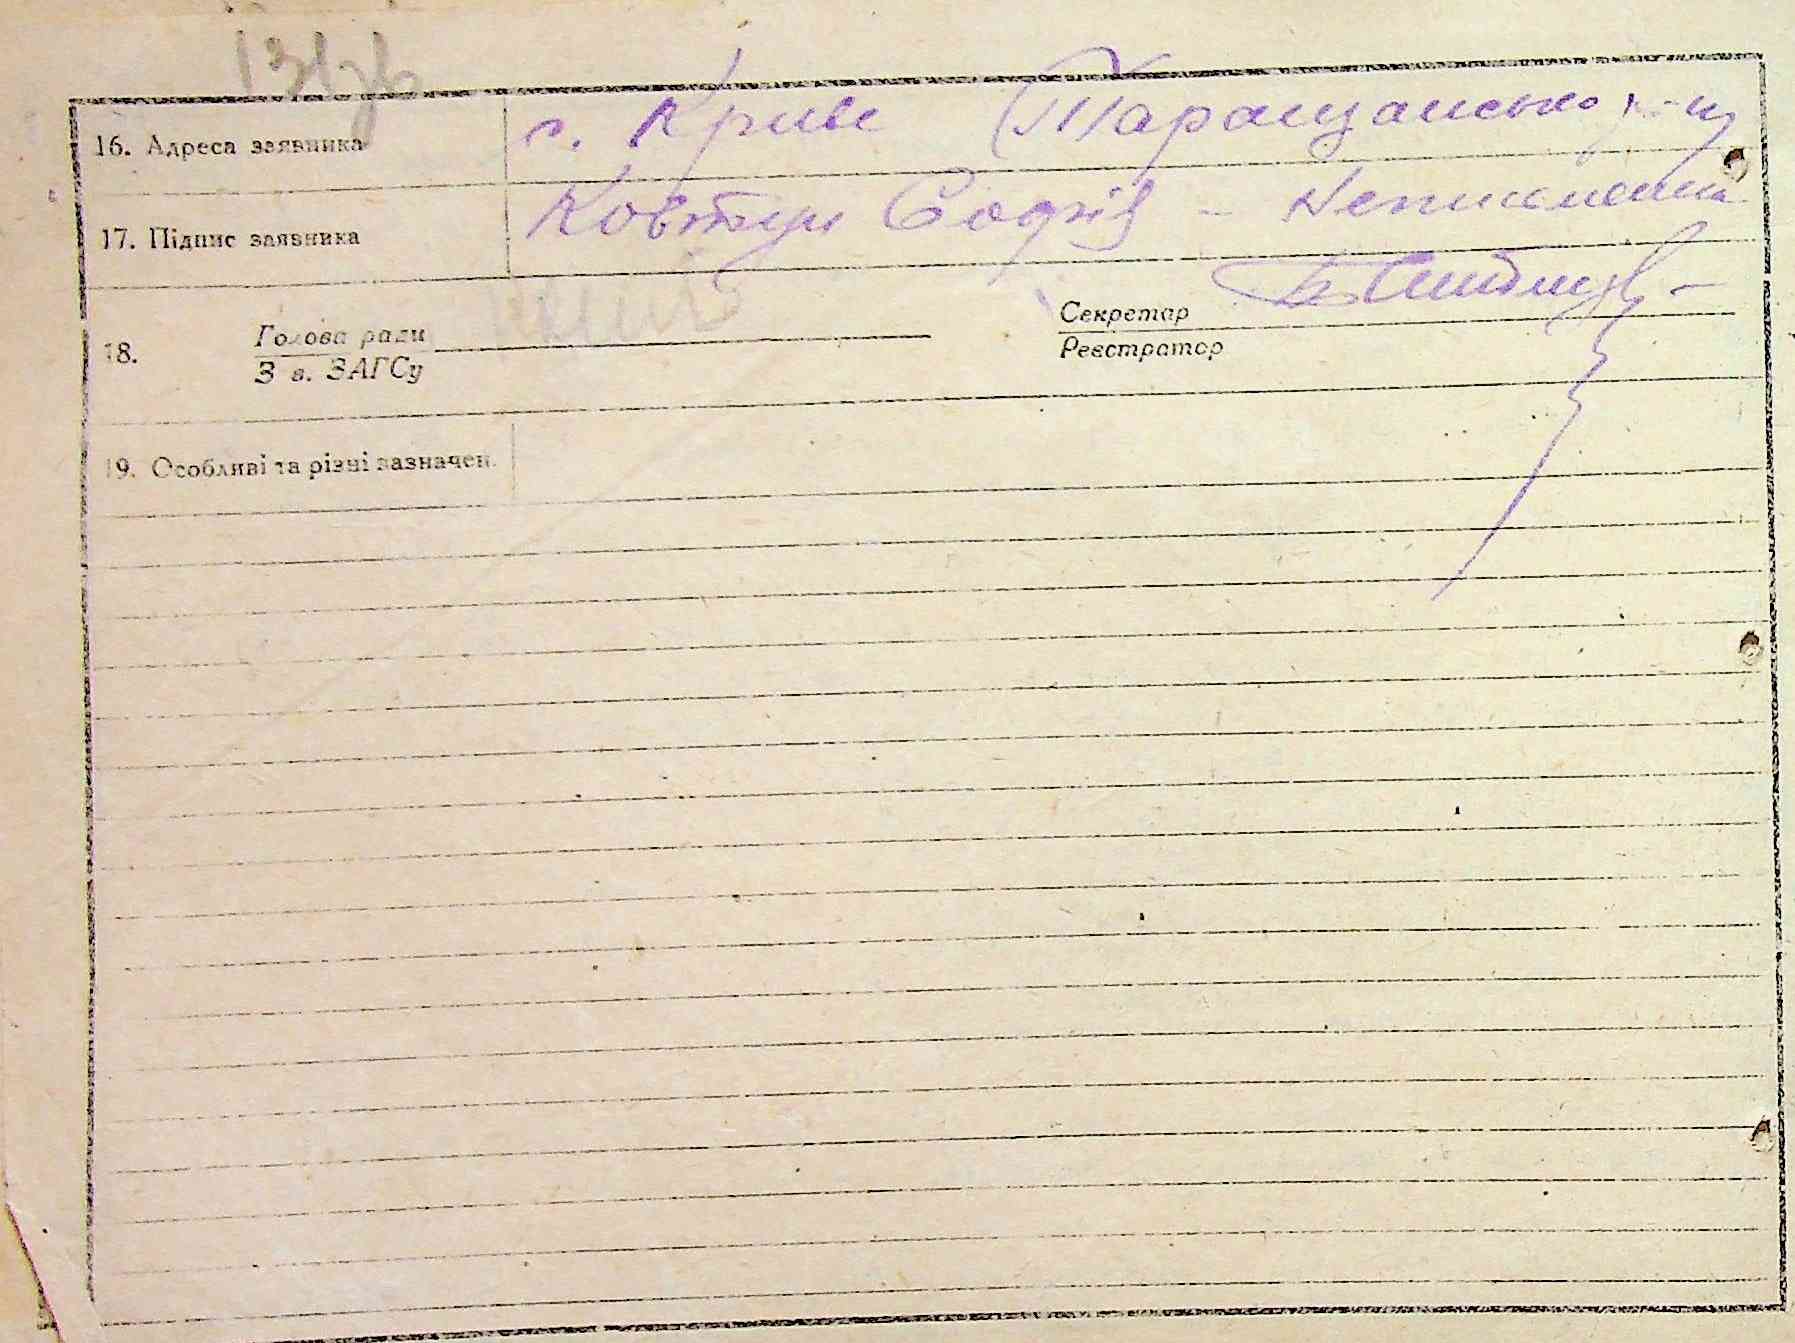 16. Адреса заявника с. Криве Таращансько
17. Підпис заявника Ковтун Софія - Неписьменна
Секретар
18. Голова ради Реєстратор
З в. ЗАГСу
19. Особливі та різні зазначен.